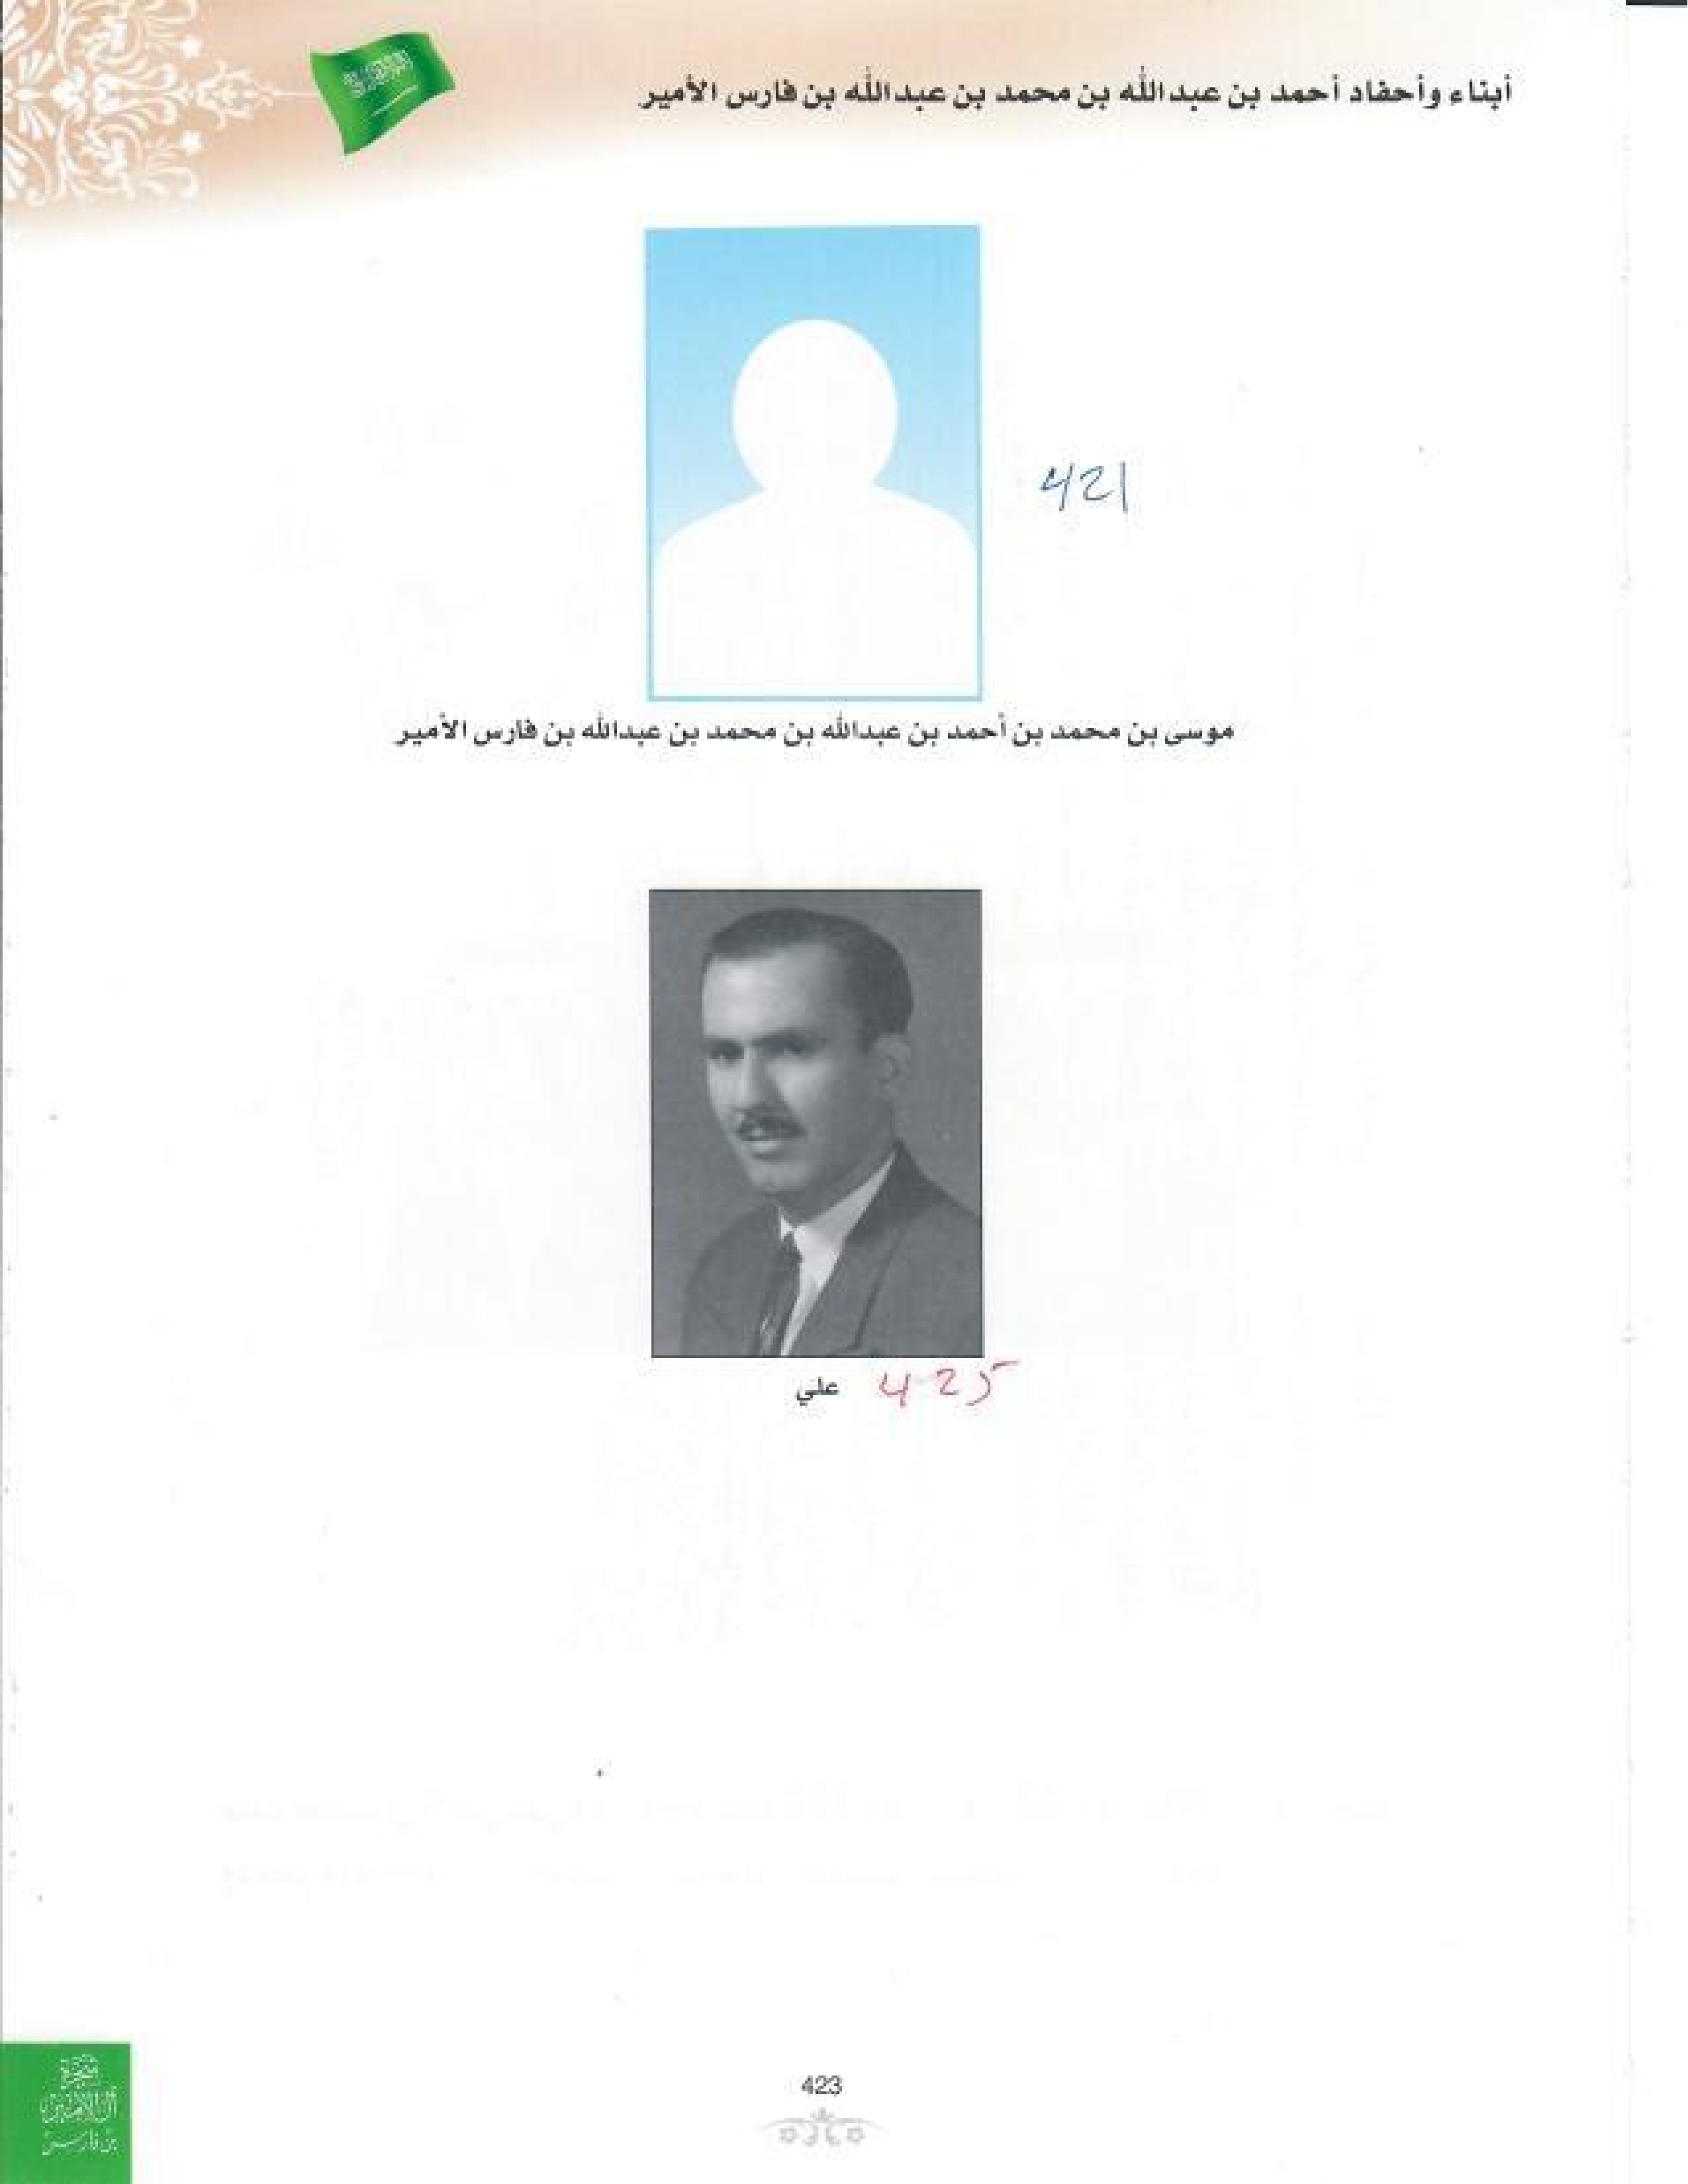 أبناء وأحفاد أحمد بن عبدالله بن محمد بن عبدالله بن فارس الأمير
421
موسى بن محمد بن أحمد بن عبدالله بن محمد بن عبدالله بن فارس الأمير
علي 425
423
شجرة
آل الأمير
بن فارس